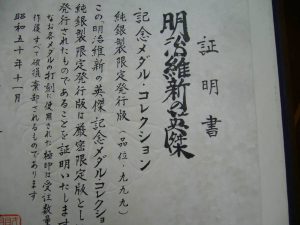 証明書
明治維新の英傑
記念メダル・コレクション
純銀製限定発行版（品位・九九九）
この明治維新の英傑記念メダル・コレクショ
純銀製限定発行版は厳密限定版とし
発行されたものであることを証明いたします
なお各メダルの打刻に使用された極印は受注数量
作後すべて破棄棄却されるものであります
昭和五十年十一月